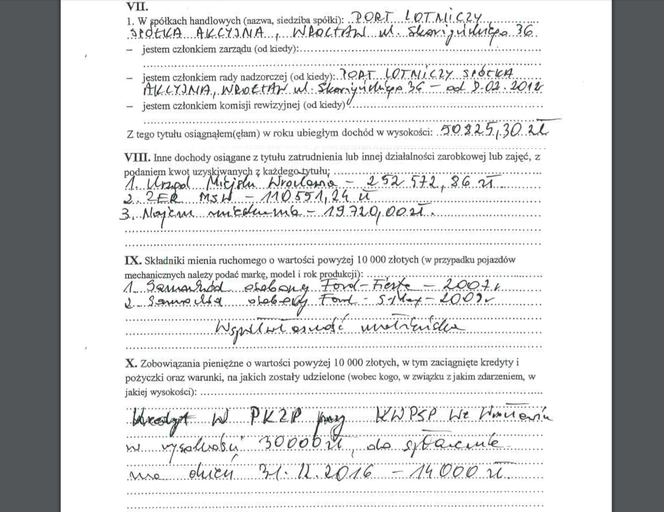 VII.
1. W spółkach handlowych (nazwa, siedziba spółki): PORT LOTNICZY
SPÓŁKA AKCYJNA, WROCŁAW ul. Skarżyńskiego 36
– jestem członkiem zarządu (od kiedy):
– jestem członkiem rady nadzorczej (od kiedy): PORT LOTNICZY SPÓŁKA
AKCYJNA, WROCŁAW ul. Skarżyńskiego 36 – od 8.02.2012
– jestem członkiem komisji rewizyjnej (od kiedy)
Z tego tytułu osiągnąłem(ęłam) w roku ubiegłym dochód w wysokości: 50 825,30 zł
VIII. Inne dochody osiągane z tytułu zatrudnienia lub innej działalności zarobkowej lub zajęć, z
podaniem kwot uzyskiwanych z każdego tytułu:
1. Urząd Miejski Wrocławia – 252 572,86 zł
2. ZER MSW – 110 551,24 zł
3. Najem mieszkania – 19 720,00 zł.
IX. Składniki mienia ruchomego o wartości powyżej 10 000 złotych (w przypadku pojazdów
mechanicznych należy podać markę, model i rok produkcji):
1. Samochód osobowy Ford – Fiesta – 2007 r
2. Samochód osobowy Ford - S Max – 2009 r
Współwłasność małżeńska
X. Zobowiązania pieniężne o wartości powyżej 10 000 złotych, w tym zaciągnięte kredyty i
pożyczki oraz warunki, na jakich zostały udzielone (wobec kogo, w związku z jakim zdarzeniem, w
jakiej wysokości):
Kredyt w PKZP przy KWPSP we Wrocławiu
w wysokości 30000 zł, do spłacenia
na dzień 31.12.2016 – 14 000 zł.